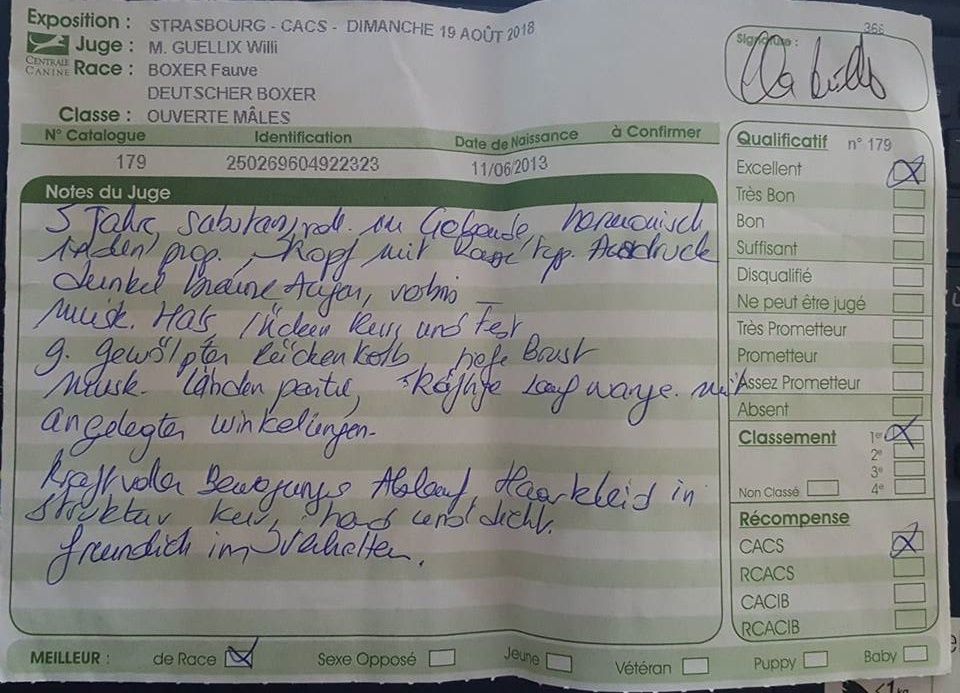 366
Exposition : STRASBOURG - CACS - DIMANCHE 19 AOÛT 2018
Juge : M. GUELLIX Willi
CENTRALE CANINE
Race : BOXER Fauve
DEUTSCHER BOXER
Classe : OUVERTE MÂLES
Signature :
N° Catalogue Identification Date de Naissance à Confirmer
179 250269604922323 11/06/2013
Notes du Juge
5 Jahre, im Gebäude, harmonisch
prop., Kopf mit Rasse typ. Ausdruck
dunkel braune Augen,
Musk. Hals, Rücken kurz und fest
g. gewölpten tiefe Brust
Musk. mit
angelegten Winkelungen.
Kraftvoller Bewegungs Ablauf, Haarkleid in
Struktur kurz, hart und dicht.
freundlich im Verhalten.
Qualificatif n° 179
Excellent
Très Bon
Bon
Suffisant
Disqualifié
Ne peut être jugé
Très Prometteur
Prometteur
Assez Prometteur
Absent
Classement 1er
2e
3e
Non Classé 4e
Récompense
CACS
RCACS
CACIB
RCACIB
MEILLEUR : de Race Sexe Opposé Jeune Vétéran Puppy Baby